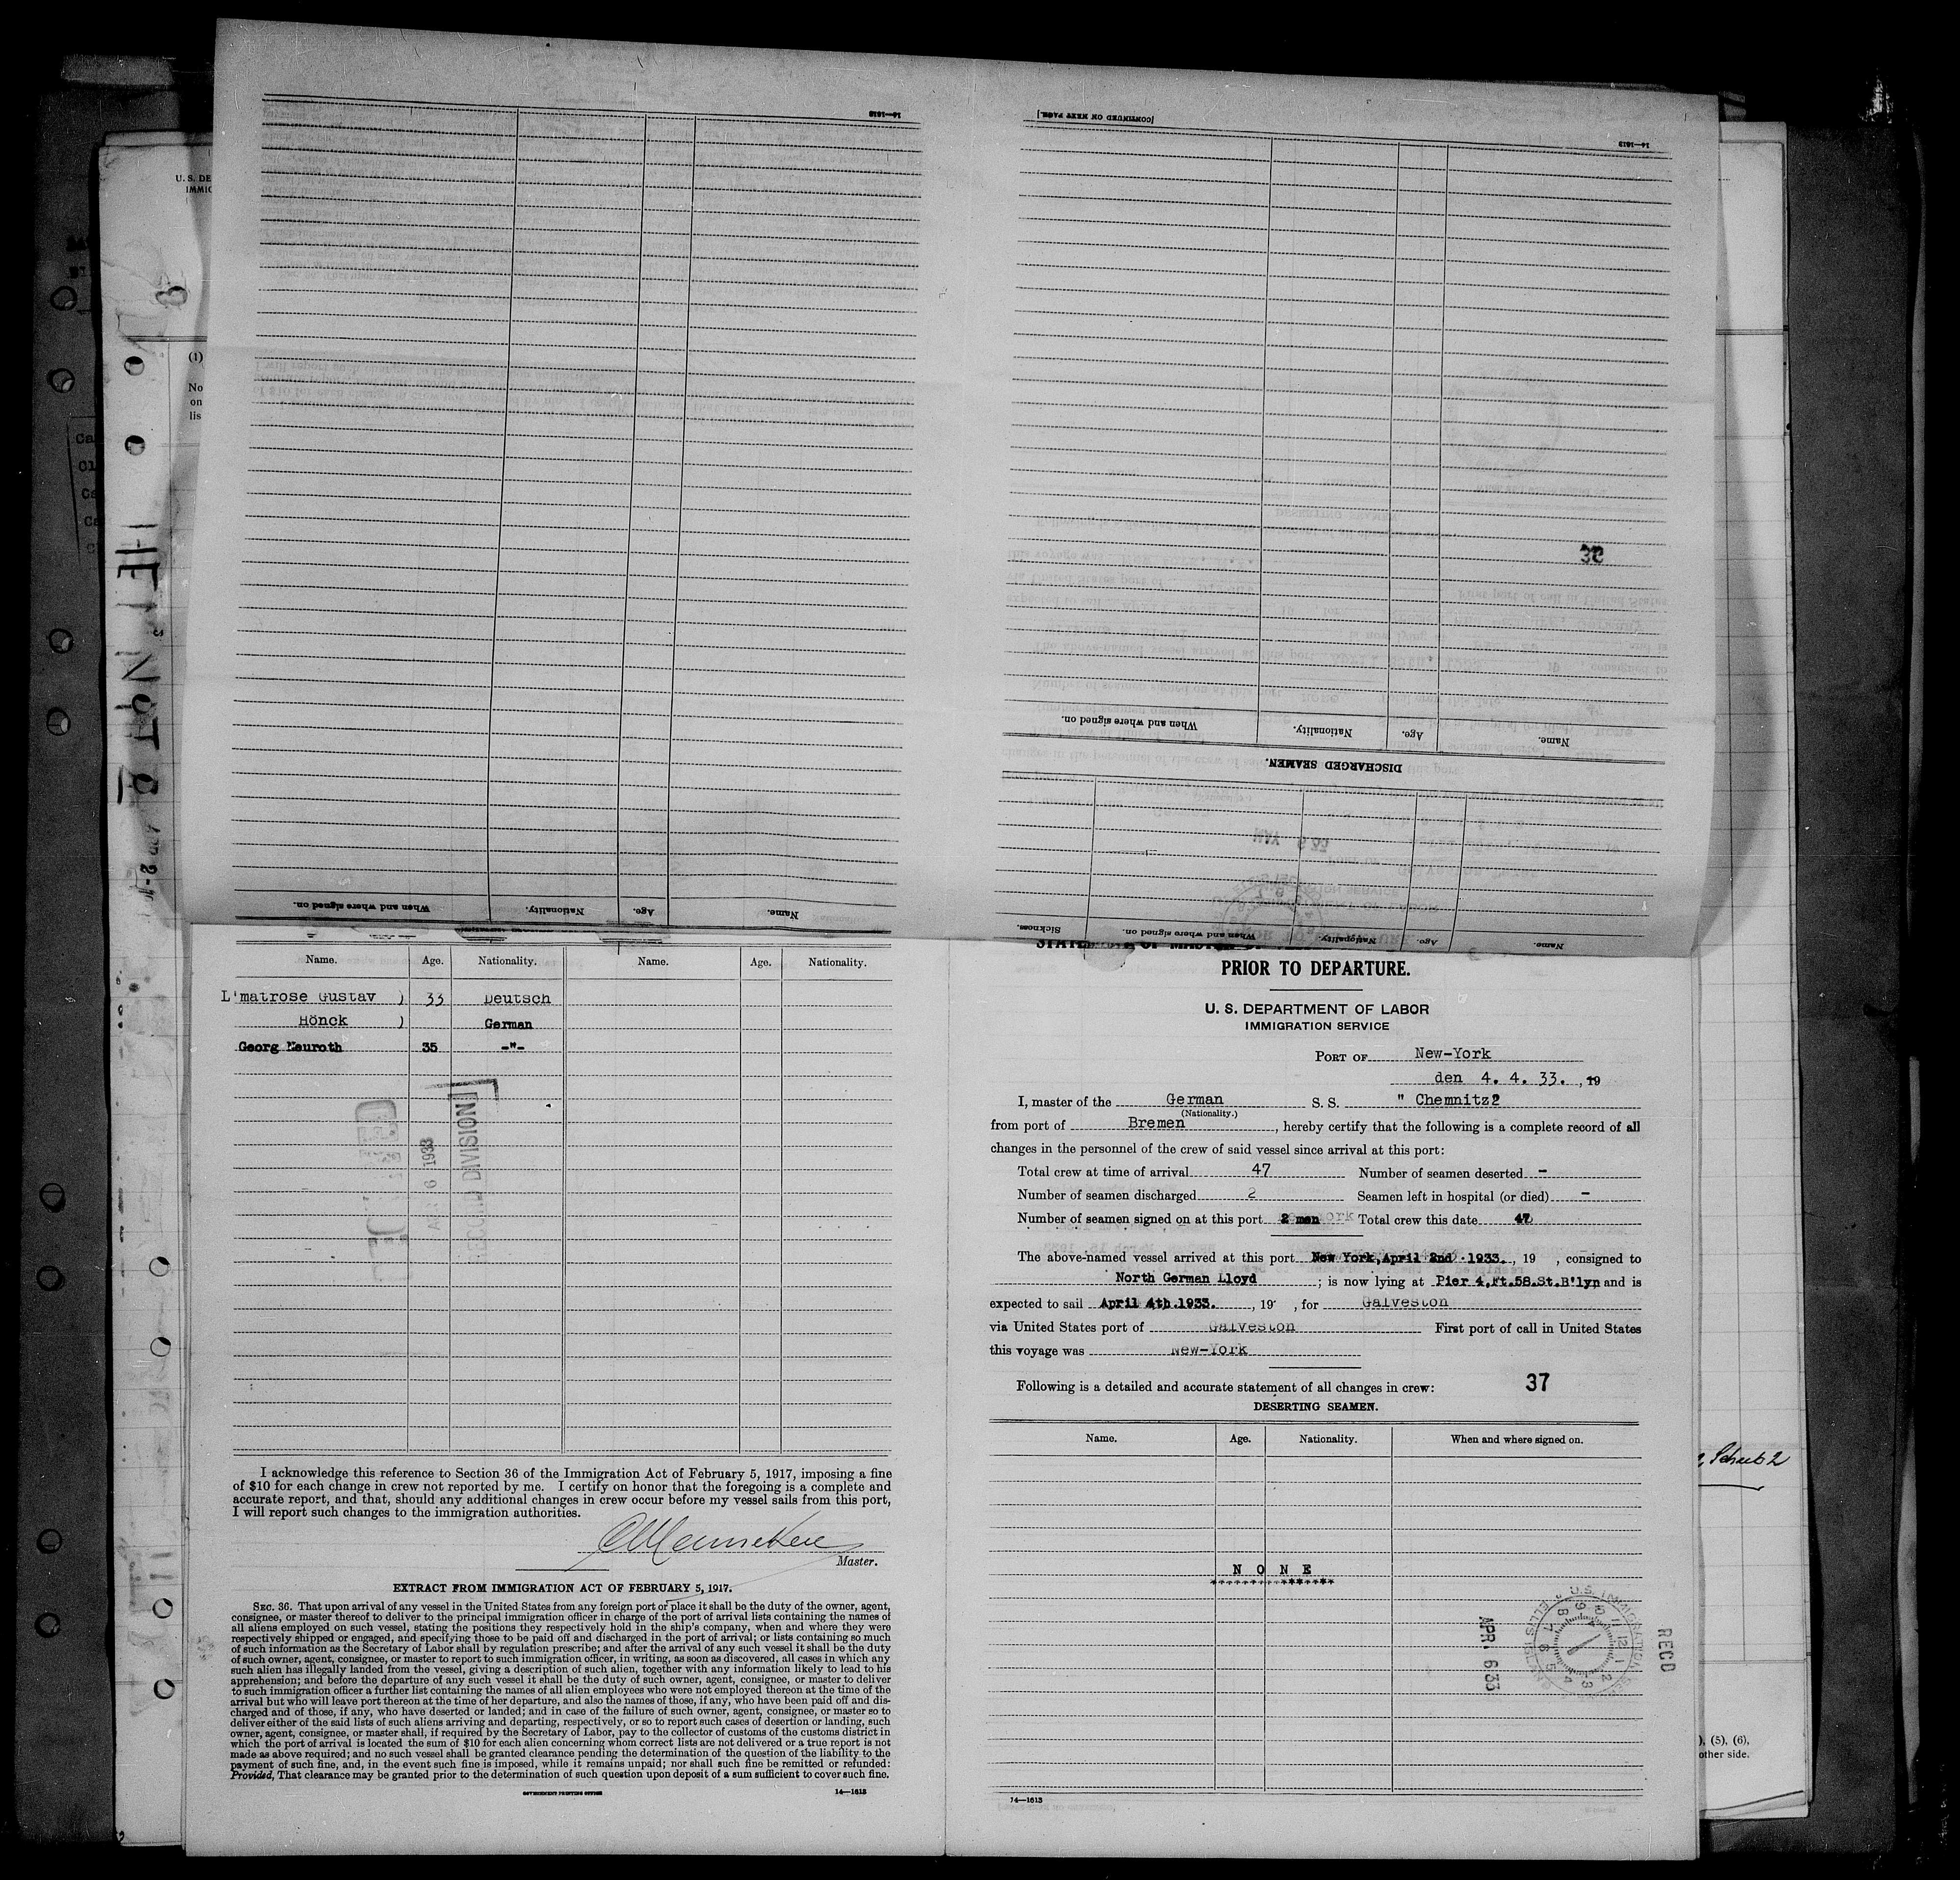 14—1613
[CONTINUED ON NEXT PAGE.]
14—1613
36
When and where signed on.
Nationality.
Age.
Name.
DISCHARGED SEAMEN.
Sickness.
When and where signed on.
Nationality.
Age.
Name.
When and where signed on.
Nationality.
Age.
Name.
U. S. DE
IMMIG
(1)
No
on
lis
Name. Age. Nationality. Name. Age. Nationality.
L'matrose Gustav ) 33 Deutsch
Hönck ) German
Georg Neuroth 35 -"-
1933
DIVISION
I acknowledge this reference to Section 36 of the Immigration Act of February 5, 1917, imposing a fine
of $10 for each change in crew not reported by me. I certify on honor that the foregoing is a complete and
accurate report, and that, should any additional changes in crew occur before my vessel sails from this port,
I will report such changes to the immigration authorities.
Master.
EXTRACT FROM IMMIGRATION ACT OF FEBRUARY 5, 1917.
SEC. 36. That upon arrival of any vessel in the United States from any foreign port or place it shall be the duty of the owner, agent,
consignee, or master thereof to deliver to the principal immigration officer in charge of the port of arrival lists containing the names of
all aliens employed on such vessel, stating the positions they respectively hold in the ship's company, when and where they were
respectively shipped or engaged, and specifying those to be paid off and discharged in the port of arrival; or lists containing so much
of such information as the Secretary of Labor shall by regulation prescribe; and after the arrival of any such vessel it shall be the duty
of such owner, agent, consignee, or master to report to such immigration officer, in writing, as soon as discovered, all cases in which any
such alien has illegally landed from the vessel, giving a description of such alien, together with any information likely to lead to his
apprehension; and before the departure of any such vessel it shall be the duty of such owner, agent, consignee, or master to deliver
to such immigration officer a further list containing the names of all alien employees who were not employed thereon at the time of the
arrival but who will leave port thereon at the time of her departure, and also the names of those, if any, who have been paid off and dis-
charged and of those, if any, who have deserted or landed; and in case of the failure of such owner, agent, consignee, or master so to
deliver either of the said lists of such aliens arriving and departing, respectively, or so to report such cases of desertion or landing, such
owner, agent, consignee, or master shall, if required by the Secretary of Labor, pay to the collector of customs of the customs district in
which the port of arrival is located the sum of $10 for each alien concerning whom correct lists are not delivered or a true report is not
made as above required; and no such vessel shall be granted clearance pending the determination of the question of the liability to the
payment of such fine, and, in the event such fine is imposed, while it remains unpaid; nor shall such fine be remitted or refunded:
Provided, That clearance may be granted prior to the determination of such question upon deposit of a sum sufficient to cover such fine.
GOVERNMENT PRINTING OFFICE 14—1613
PRIOR TO DEPARTURE.
U. S. DEPARTMENT OF LABOR
IMMIGRATION SERVICE
PORT OF New-York
den 4. 4. 33. , 19
I, master of the German S. S. " Chemnitz2
(Nationality.)
from port of Bremen , hereby certify that the following is a complete record of all
changes in the personnel of the crew of said vessel since arrival at this port:
Total crew at time of arrival 47 Number of seamen deserted -
Number of seamen discharged 2 Seamen left in hospital (or died) -
Number of seamen signed on at this port 2 men Total crew this date 47
The above-named vessel arrived at this port New York,April 2nd.1933. , 19 , consigned to
North German Lloyd ; is now lying at Pier 4,Ft.58.St.B'lyn and is
expected to sail April 4th.1933. , 19 , for Galveston
via United States port of Galveston First port of call in United States
this voyage was New-York
Following is a detailed and accurate statement of all changes in crew: 37
DESERTING SEAMEN.
Name. Age. Nationality. When and where signed on.
N O N E
APR. 6 33
RECD
U.S. IMMIGRATION
14—1613
), (5), (6),
other side.